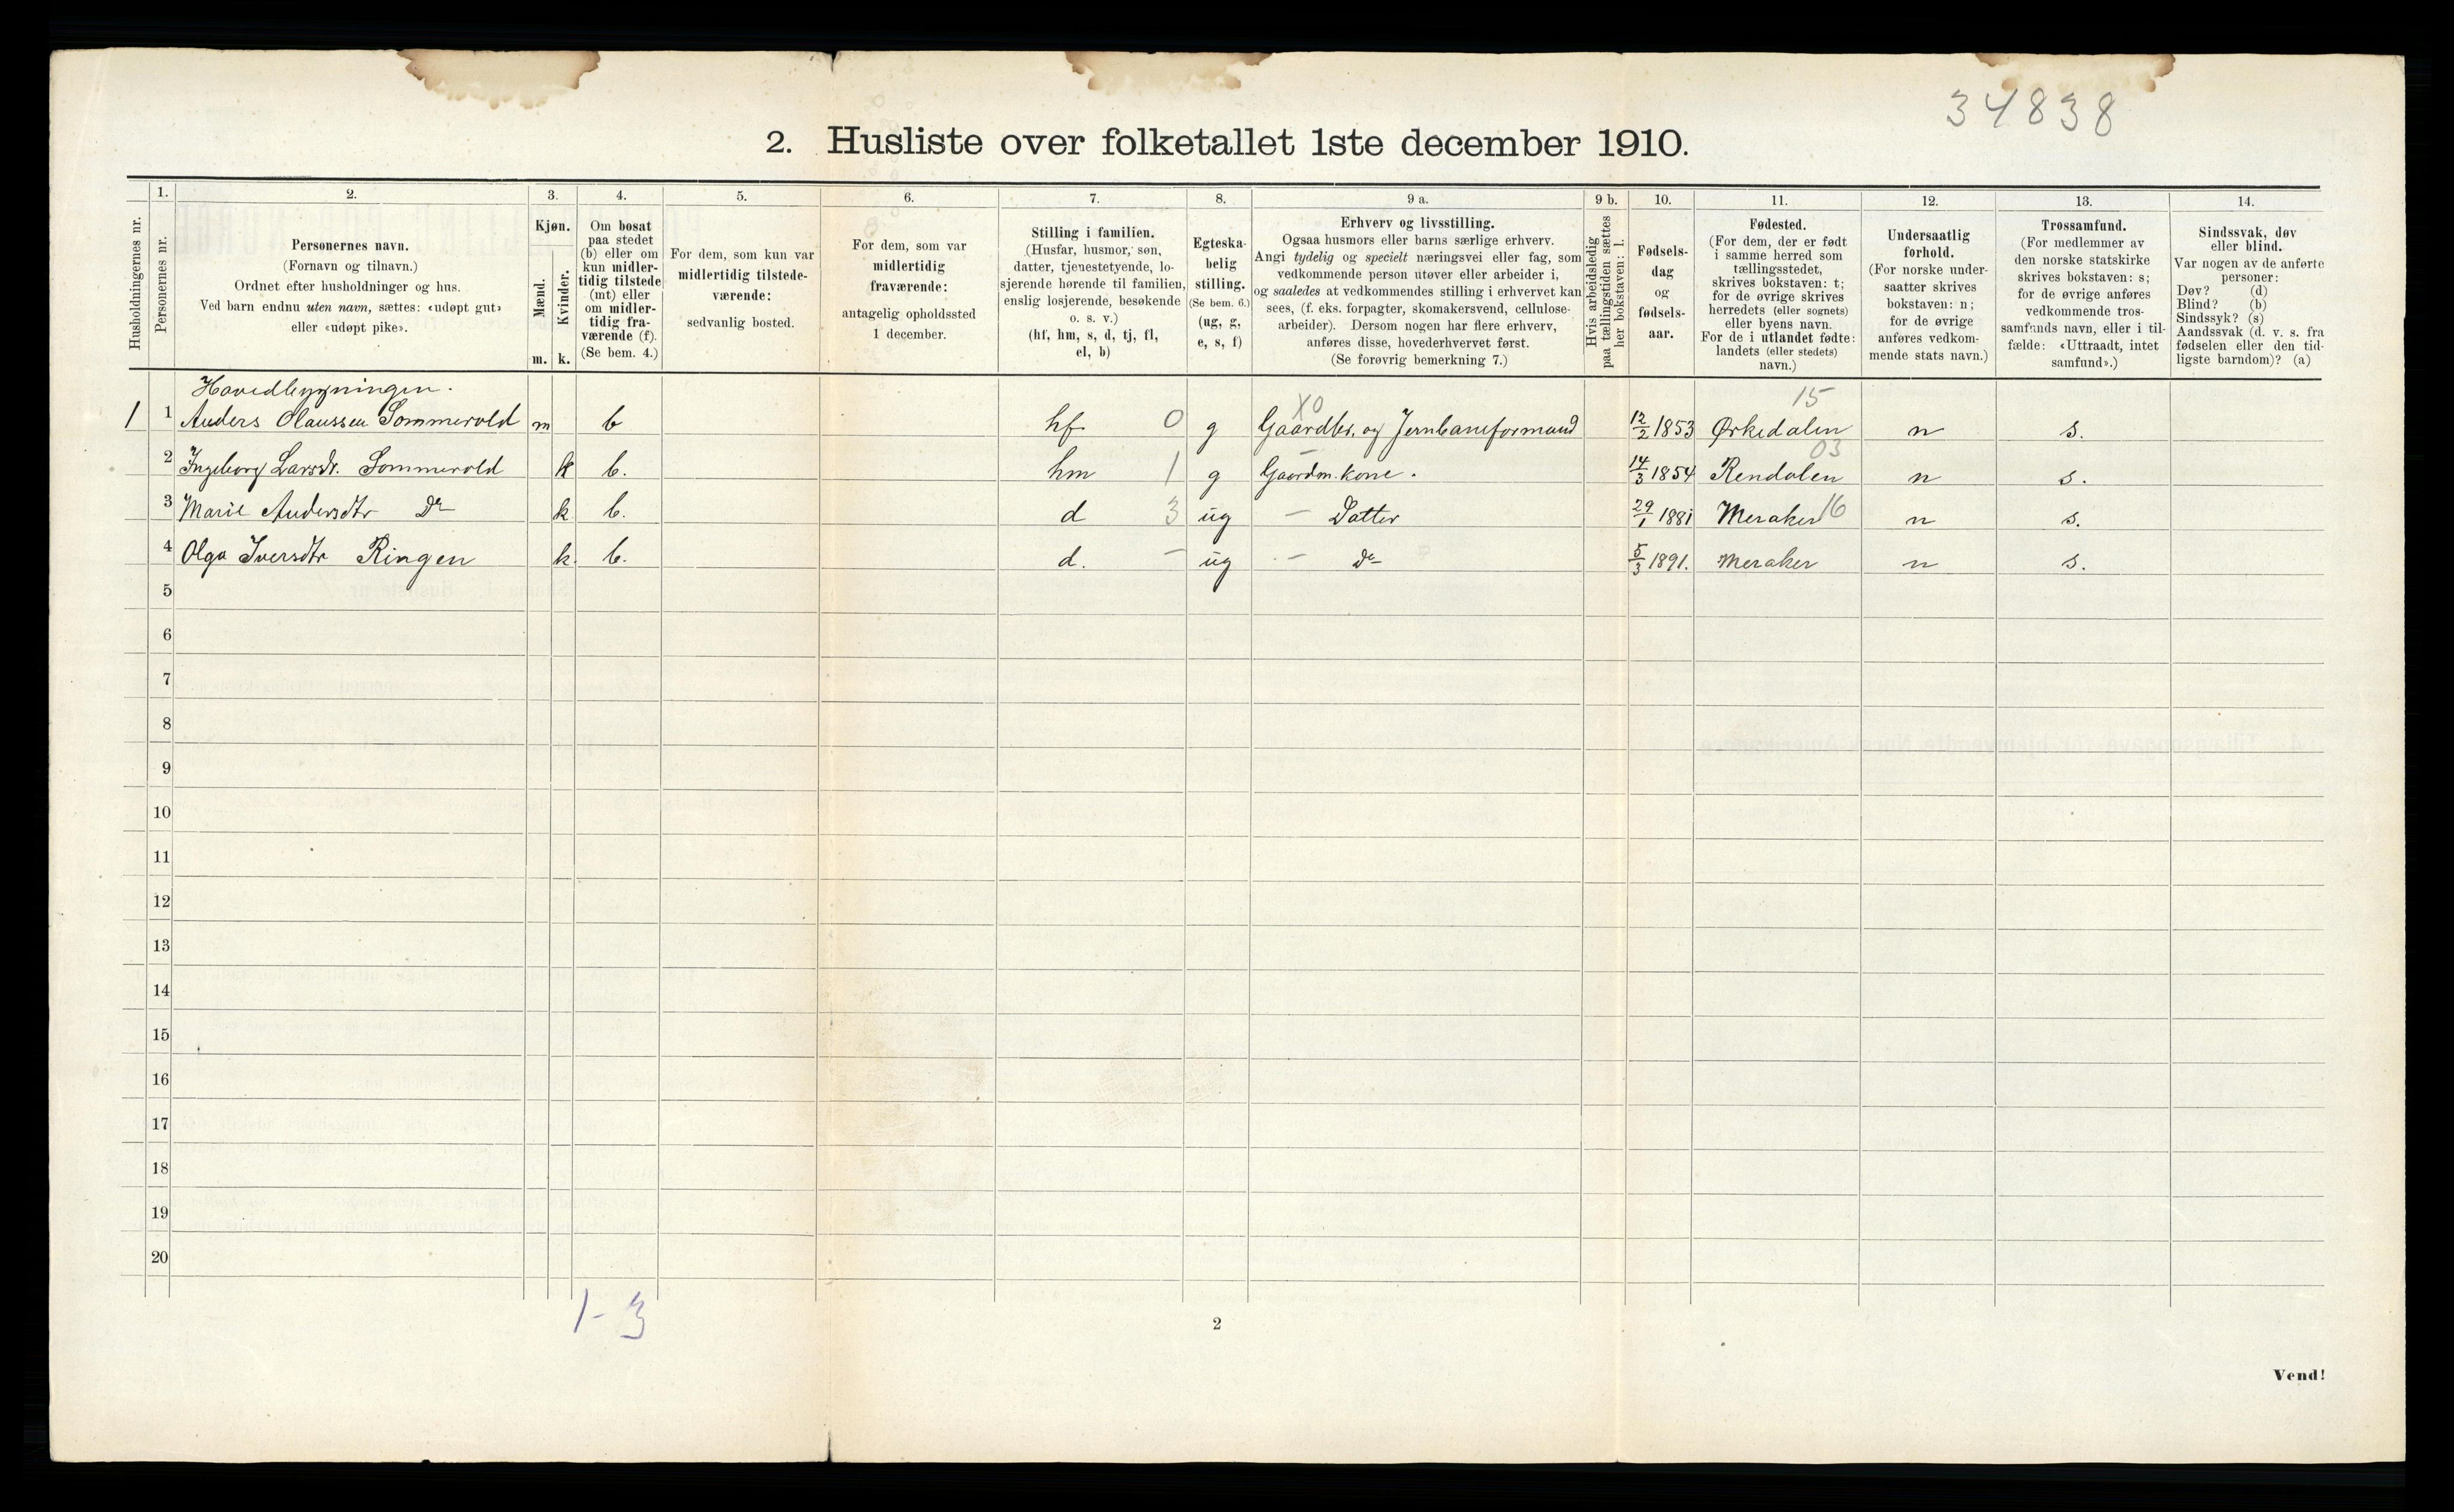 34838
2. Husliste over folketallet 1ste december 1910.
1. 2. 3. 4. 5. 6. 7. 8. 9 a. 9 b. 10. 11. 12. 13. 14.
Husholdningernes nr.
Personernes nr.
Personernes navn.
(Fornavn og tilnavn.)
Ordnet efter husholdninger og hus.
Ved barn endnu uten navn, sættes: «udøpt gut»
eller «udøpt pike».
Kjøn.
Mænd.
Kvinder.
m. k.
Om bosat
paa stedet
(b) eller om
kun midler-
tidig tilstede
(mt) eller
om midler-
tidig fra-
værende (f).
(Se bem. 4.)
For dem, som kun var
midlertidig tilstede-
værende:
sedvanlig bosted.
For dem, som var
midlertidig
fraværende:
antagelig opholdssted
1 december.
Stilling i familien.
(Husfar, husmor, søn,
datter, tjenestetyende, lo-
sjerende hørende til familien,
enslig losjerende, besøkende
o. s. v.)
(hf, hm, s, d, tj, fl,
el, b)
Egteska-
belig
stilling.
(Se bem. 6.)
(ug, g,
e, s, f)
Erhverv og livsstilling.
Ogsaa husmors eller barns særlige erhverv.
Angi tydelig og specielt næringsvei eller fag, som
vedkommende person utøver eller arbeider i,
og saaledes at vedkommendes stilling i erhvervet kan
sees, (f. eks. forpagter, skomakersvend, cellulose-
arbeider). Dersom nogen har flere erhverv,
anføres disse, hovederhvervet først.
(Se forøvrig bemerkning 7.)
Hvis arbeidsledig
paa tællingstiden sættes
her bokstaven: l.
Fødsels-
dag
og
fødsels-
aar.
Fødested.
(For dem, der er født
i samme herred som
tællingsstedet,
skrives bokstaven: t;
for de øvrige skrives
herredets (eller sognets)
eller byens navn.
For de i utlandet fødte:
landets (eller stedets)
navn.)
Undersaatlig
forhold.
(For norske under-
saatter skrives
bokstaven: n;
for de øvrige
anføres vedkom-
mende stats navn.)
Trossamfund.
(For medlemmer av
den norske statskirke
skrives bokstaven: s;
for de øvrige anføres
vedkommende tros-
samfunds navn, eller i til-
fælde: «Uttraadt, intet
samfund».)
Sindssvak, døv
eller blind.
Var nogen av de anførte
personer:
Døv? (d)
Blind? (b)
Sindssyk? (s)
Aandssvak (d. v. s. fra
fødselen eller den tid-
ligste barndom)? (a)
Hovedbygningen.
X0 15
1 1 Anders Olaussen Sommervold m b hf 0 g Gaardbr. og Jernbaneformand 12/2 1853 Ørkedalen n s.
03
2 Ingeborg Larsdr. Sommervold k b. hm 1 g Gaardm. kone. 14/3 1854 Rendalen n s.
3 Marie Andersdtr Do k b. d 3 ug - Datter 29/1 1881 Meraker 16 n s.
4 Olga Iversdtr Ringen k. b. d. - ug - do 5/3 1891. Meraker n s.
5
6
7
8
9
10
11
12
13
14
15
16
17
18
19
20
1-3
2
Vend!